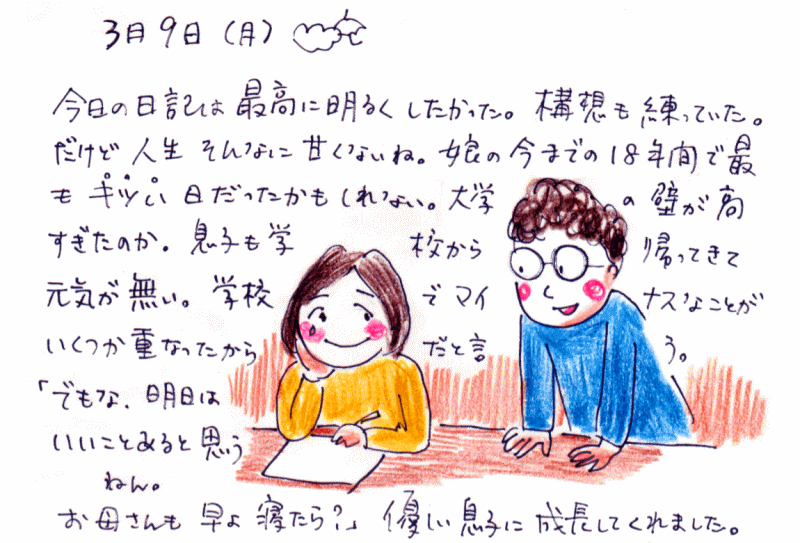 3月9日（月）
今日の日記は最高に明るくしたかった。構想も練っていた。
だけど人生そんなに甘くないね。娘の今までの18年間で最
もキツい日だったかもしれない。大学の壁が高
すぎたのか。息子も学校から帰ってきて
元気が無い。学校でマイナスなことが
いくつか重なったからだと言う。
「でもな、明日は
いいことあると思う
ねん。
お母さんも早よ寝たら？」優しい息子に成長してくれました。